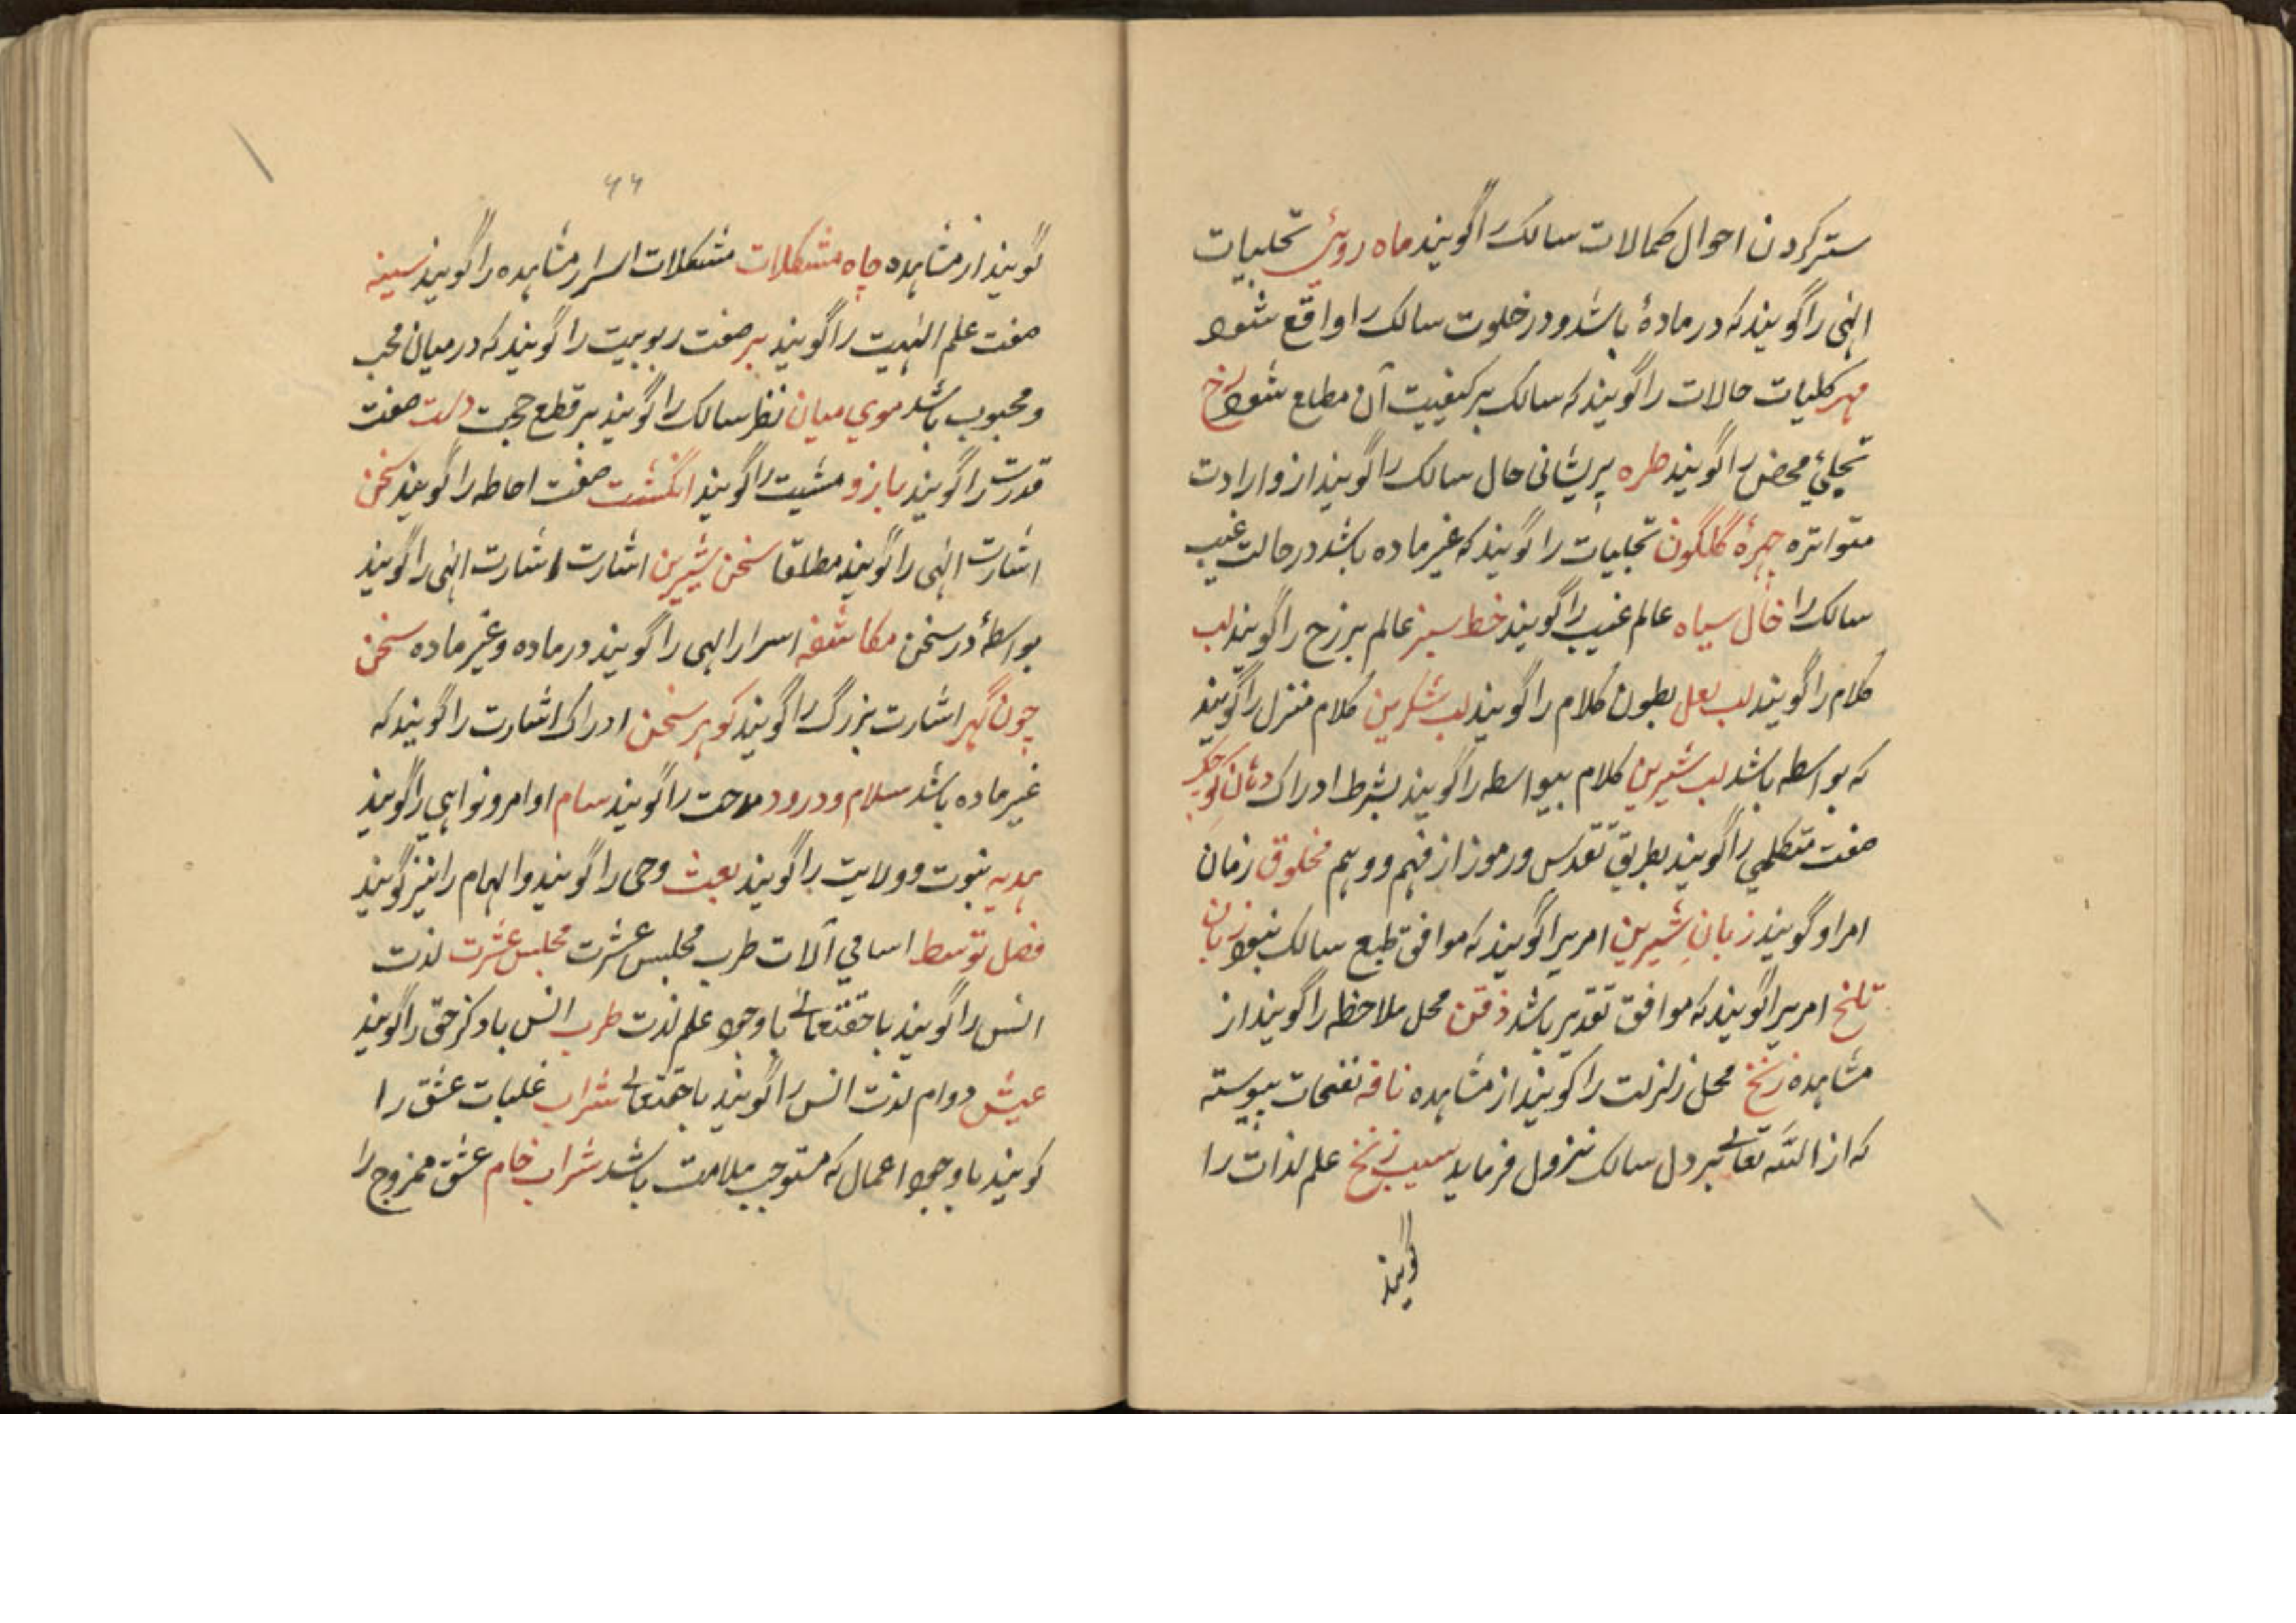 ستر کردن احوال کمالات سالک را گویند ماه روئی تجلیات
الهی را گویند که در مادهٔ باشد و در خلوت سالک را واقع شود
مهر کلیات حالات را گویند که سالک بر کیفییت آن مطلع شود رخ
تجلیٔ محض را گویند طره پریشانی حال سالک را گویند از وارادت
متواتره چهرهٔ گلگون تجلیات را گویند که غیر ماده باشد در حالت غیب
سالک را خال سیاه عالم غیب را گویند خط سبز عالم برزخ را گویند لب
کلام را گویند لب لعل بطون کلام را گویند لب شکرین کلام منزل را گویند
که بواسطه باشد لب شیرین کلام بیواسطه را گویند بشرط ادراک دهان کوچک
صفت متکلمی را گویند بطریق تقدس و رموز از فهم و وهم مخلوق زمان
امر او گویند زبانِ شیرین امریرا گویند که موافق طبع سالک نبود زبان
تلخ امریرا گویند که موافق تقدیر باشد ذقن محل ملاحظه را گویند از
مشاهده زنخ محل زلزلت را گویند از مشاهده نافه نفحات پیوسته
که از الله تعالی بر دل سالک نزول فرماید سیب زنخ علم لذات را
گویند
۶۶
گویند از مشاهده چاه مشکلات مشکلات اسرار مشاهده را گویند سینه
صفت علم الٰهیت را گویند بر صفت ربوبیت را گویند که در میان محب
و محبوب باشد موی میان نظر سالک را گویند بر قطع حجب دست صفت
قدرت را گویند بازو مشیت را گویند انگشت صفت احاطه را گویند سخن
اشارت الهی را گویند مطلقا سخن شیرین اشارت اشارت الهی را گویند
بواسطهٔ در سخن مکاشفه اسرار الهی را گویند در ماده و غیر ماده سخن
چون گهر اشارت بزرگ را گویند کوهر سخن ادراک اشارت را گویند که
غیر ماده باشد سلام و درود مدحت را گویند سام اوامر و نواهی را گویند
هدیه نبوت و ولایت را گویند بعث وحی را گویند و الهام را نیز گویند
فصل توسط اسامی آلات طرب مجلس عشرت مجلس عشرت لذت
انس را گویند با حقتعالی باوجود علم لذت طرب انس با ذکر حق را گویند
عیش دوام لذت انس را گویند با حقتعالی شراب غلبات عشق را
کویند باوجود اعمال که مستوجب ملامت باشد شراب خام عشق ممزوج را